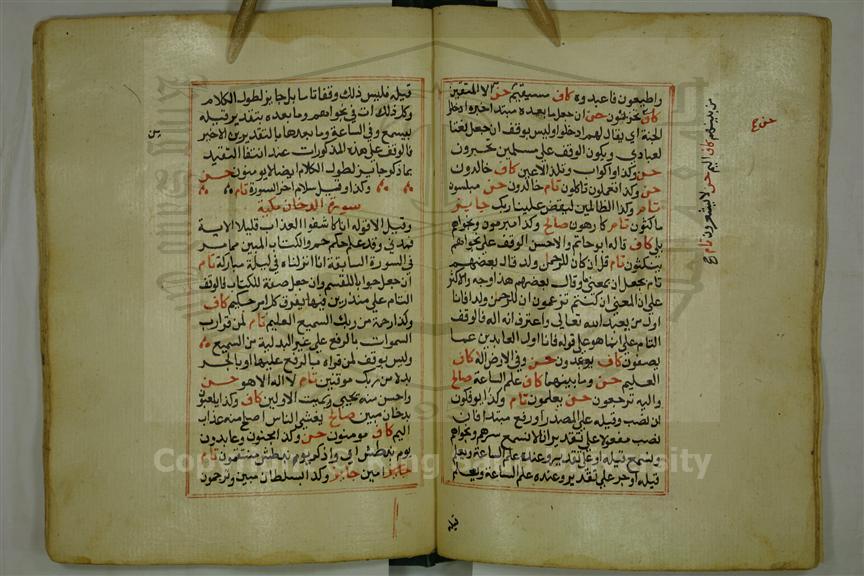 واطيعون فاعبدوه كاف مستقيم حسن الا المتقين
كاف تحزنون حسن ان جعل ما بعده مبتدا خبره ادخلوا
الجنة اي يقال لهم ادخلوا وليس بوقف ان جعل نعتا
لعبادي ويكون الوقف على مسلمين تحبرون
حسن وكذا واكواب وتلذ الاعين كاف خالدون
حسن وكذا تعملون تاكلون تام خالدون حسن مبلسون
تام وكذا الظالمين ليقض علينا ربك جايز
ماكثون تام كارهون صالح وكذا مبرمون ونجواهم
بلى كاف قاله ابو حاتم والاحسن الوقف على نجواهم
يكتبون تام قل ان كان للرحمن ولد قال بعضهم
تام بجعل ان بمعنى ما وقال بعضهم هذا وجه والاكثر
على ان المعنى ان كنتم تزعمون ان للرحمن ولدا فانا
اول من يعبد الله تعالى واعترف انه اله فالوقف
التام على انما هو على قوله فانا اول العابدين عما
يصفون كاف يوعدون حسن وفي الارض اله كاف
العليم حسن وما بينهما كاف علم الساعة صالح
واليه ترجعون حسن يعلمون تام وكذا يوفكون
ان نصب وقيله على المصدر او رفع مبتدا فان
نصب مفعولا على تقدير انا لا نسمع سرهم ونجواهم
ونسمع قيله او على تقدير وعنده علم الساعة ويعلم
قيله او جر على تقدير وعنده علم الساعة وبعلم
من بيتهم كاف اليم حسن لا يشعرون تام
قيله
قيله فليس ذلك وقفا تاما بل جايز لطول الكلام
وكذلك ات في نجواهم وما بعده بتقدير قيله
بيسمع وفي الساعة وما بعدها بالتقديرين الاخير
فالوقف على هذه المذكورات عند انتفا التقييد
بما ذكر جايز لطول الكلام ايضا لا يومنون حسن
وكذا وقيل سلام اخر السورة تام
سورة الدخان مكية
وقيل الا قوله انا كاشفوا العذاب قليلا الاية
فمدني وقد علم حكم حم والكتاب المبين مما مر
في السورة السابقة انا انزلناه في ليلة مباركة تام
ان جعل جوابا للقسم وان جعل صفة للكتاب فالوقف
التام على منذرين فيها يفرق كل امر حكيم كاف
وكذا رحمة من ربك السميع العليم تام لمن قرا رب
السموات بالرفع على غير البدلية من السميع
وليس بوقف لمن قراه بالرفع عليها او بالجر
بدلا من ربك موقنين تام لا اله الا هو حسن
واحسن منه يحيي ويميت الاولين كاف وكذا يلعبون
بدخان مبين صالح يغشى الناس اصلح منه عذاب
اليم كاف مومنون حسن وكذا مجنون وعايدون
يوم نبطش اي واذكر يوم نبطش منتقمون تام
امين جايز وكذا بسلطان مبين وترجمون